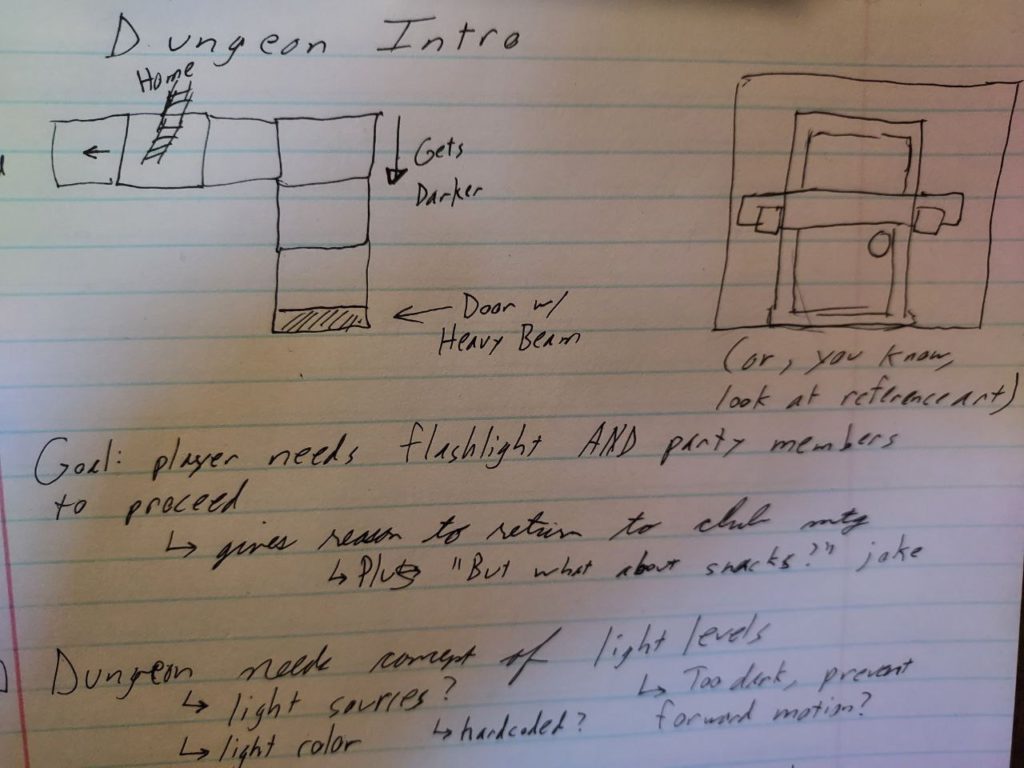 Dungeon Intro
Home
Gets
Darker
Door w/
Heavy Beam
(or, you know,
look at reference art)
Goal: player needs flashlight AND party members
to proceed
↳ gives reason to return to club mtg
↳ Plus "But what about snacks?" joke
Dungeon needs concept of light levels
↳ light sources?
↳ Too dark, prevent
forward motion?
↳ hardcoded?
↳ light color